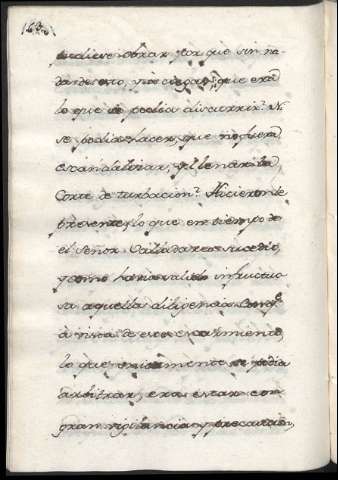 pudiese obrar, por que sin na-
da de esto, y à ciegas, que era
lo que se podia discurrir. Ni
se podia hacer, que no fuera
escandalizar, y llenar la
Corte de turbacion. Hicieronle
presente, lo que en tiempo de
el Señor Valladares sucedió,
y como havia salido infructuo
sa aquella diligencia. Con q.e
à vista de este escarmiento,
lo que unicamente se podia
arbitrar, era estar con
gran vigilancia, y precaucion,